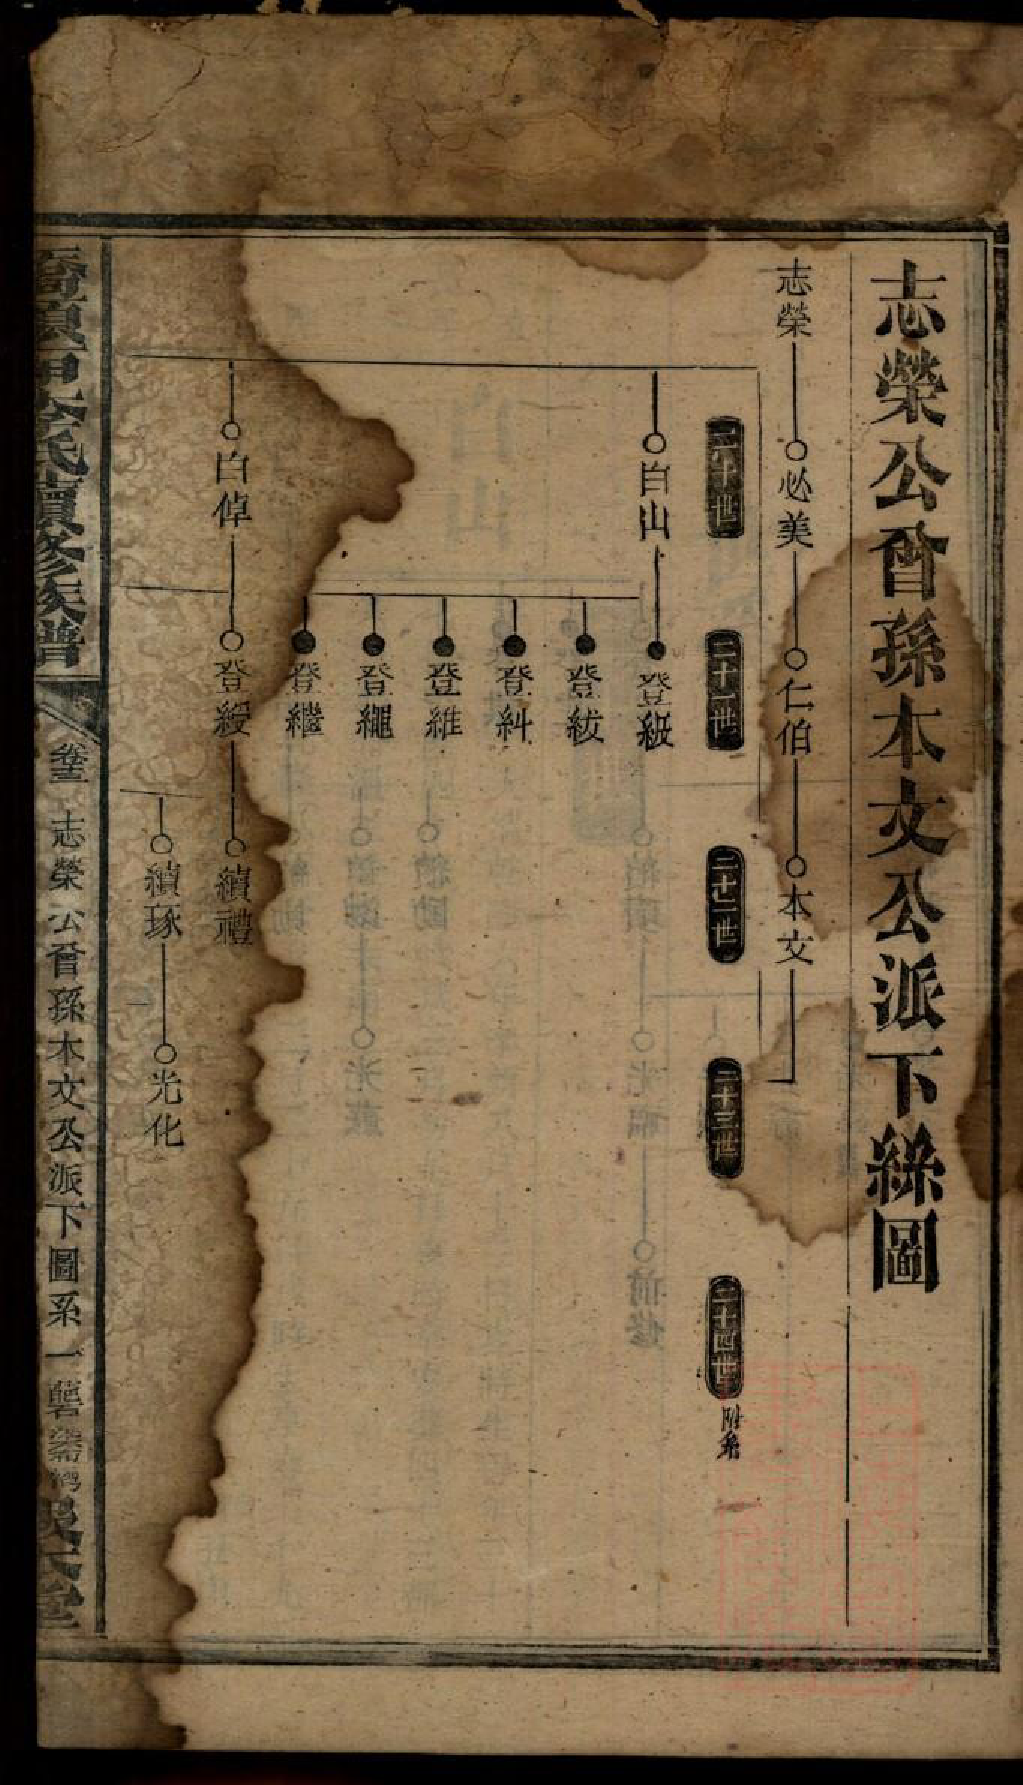 志榮公曾孫本文公派下絲圖
志榮 必美 仁伯 本文
二十世 二十一世 二十二世 二十三世 二十四世 附系
自山 登級
登紱
登糾
登維
登繩
登繼
自倬 登綬 續禮
續琢 光化
氏續修族譜 志榮公曾孫本文公派下圖系一